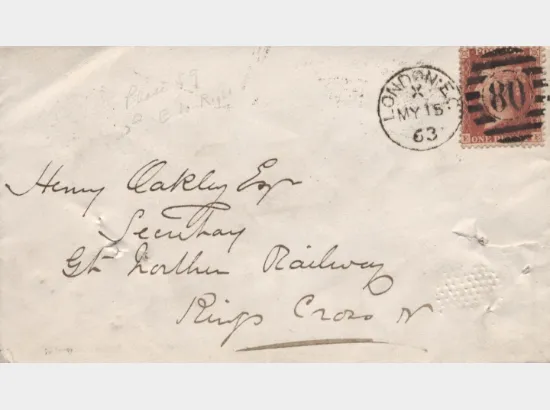 LONDON·E.C
X
MY 15
63
80
ONE
Henry Oakley Esqr
Secretary
Gt Northern Railway
Kings Cross N